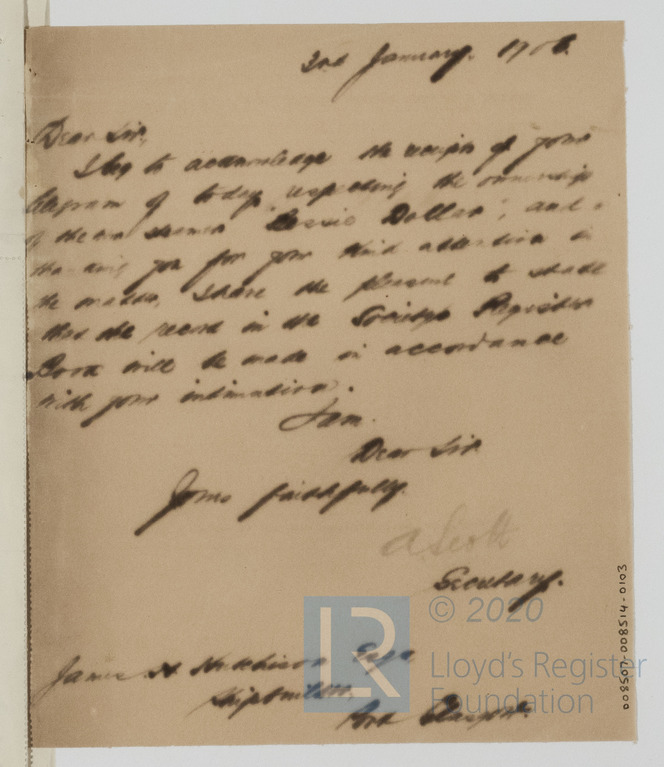 2nd January. 1906.
Dear Sir,
I beg to acknowledge the receipt of your
telegram of today respecting the ownership
of the new steamer "Bessie Dollar", and
thanking you for your kind attention in
the matter, I have the pleasure to state
that the record in the Society's Register
Book will be made in accordance
with your intimation.
I am.
Dear Sir
Yours faithfully.
A Scott
Secretary.
James H. Hutchison Esqr,
Shipbuilder,
Port Glasgow.
LR
© 2020
Lloyd's Register
Foundation
008507-008514-0103